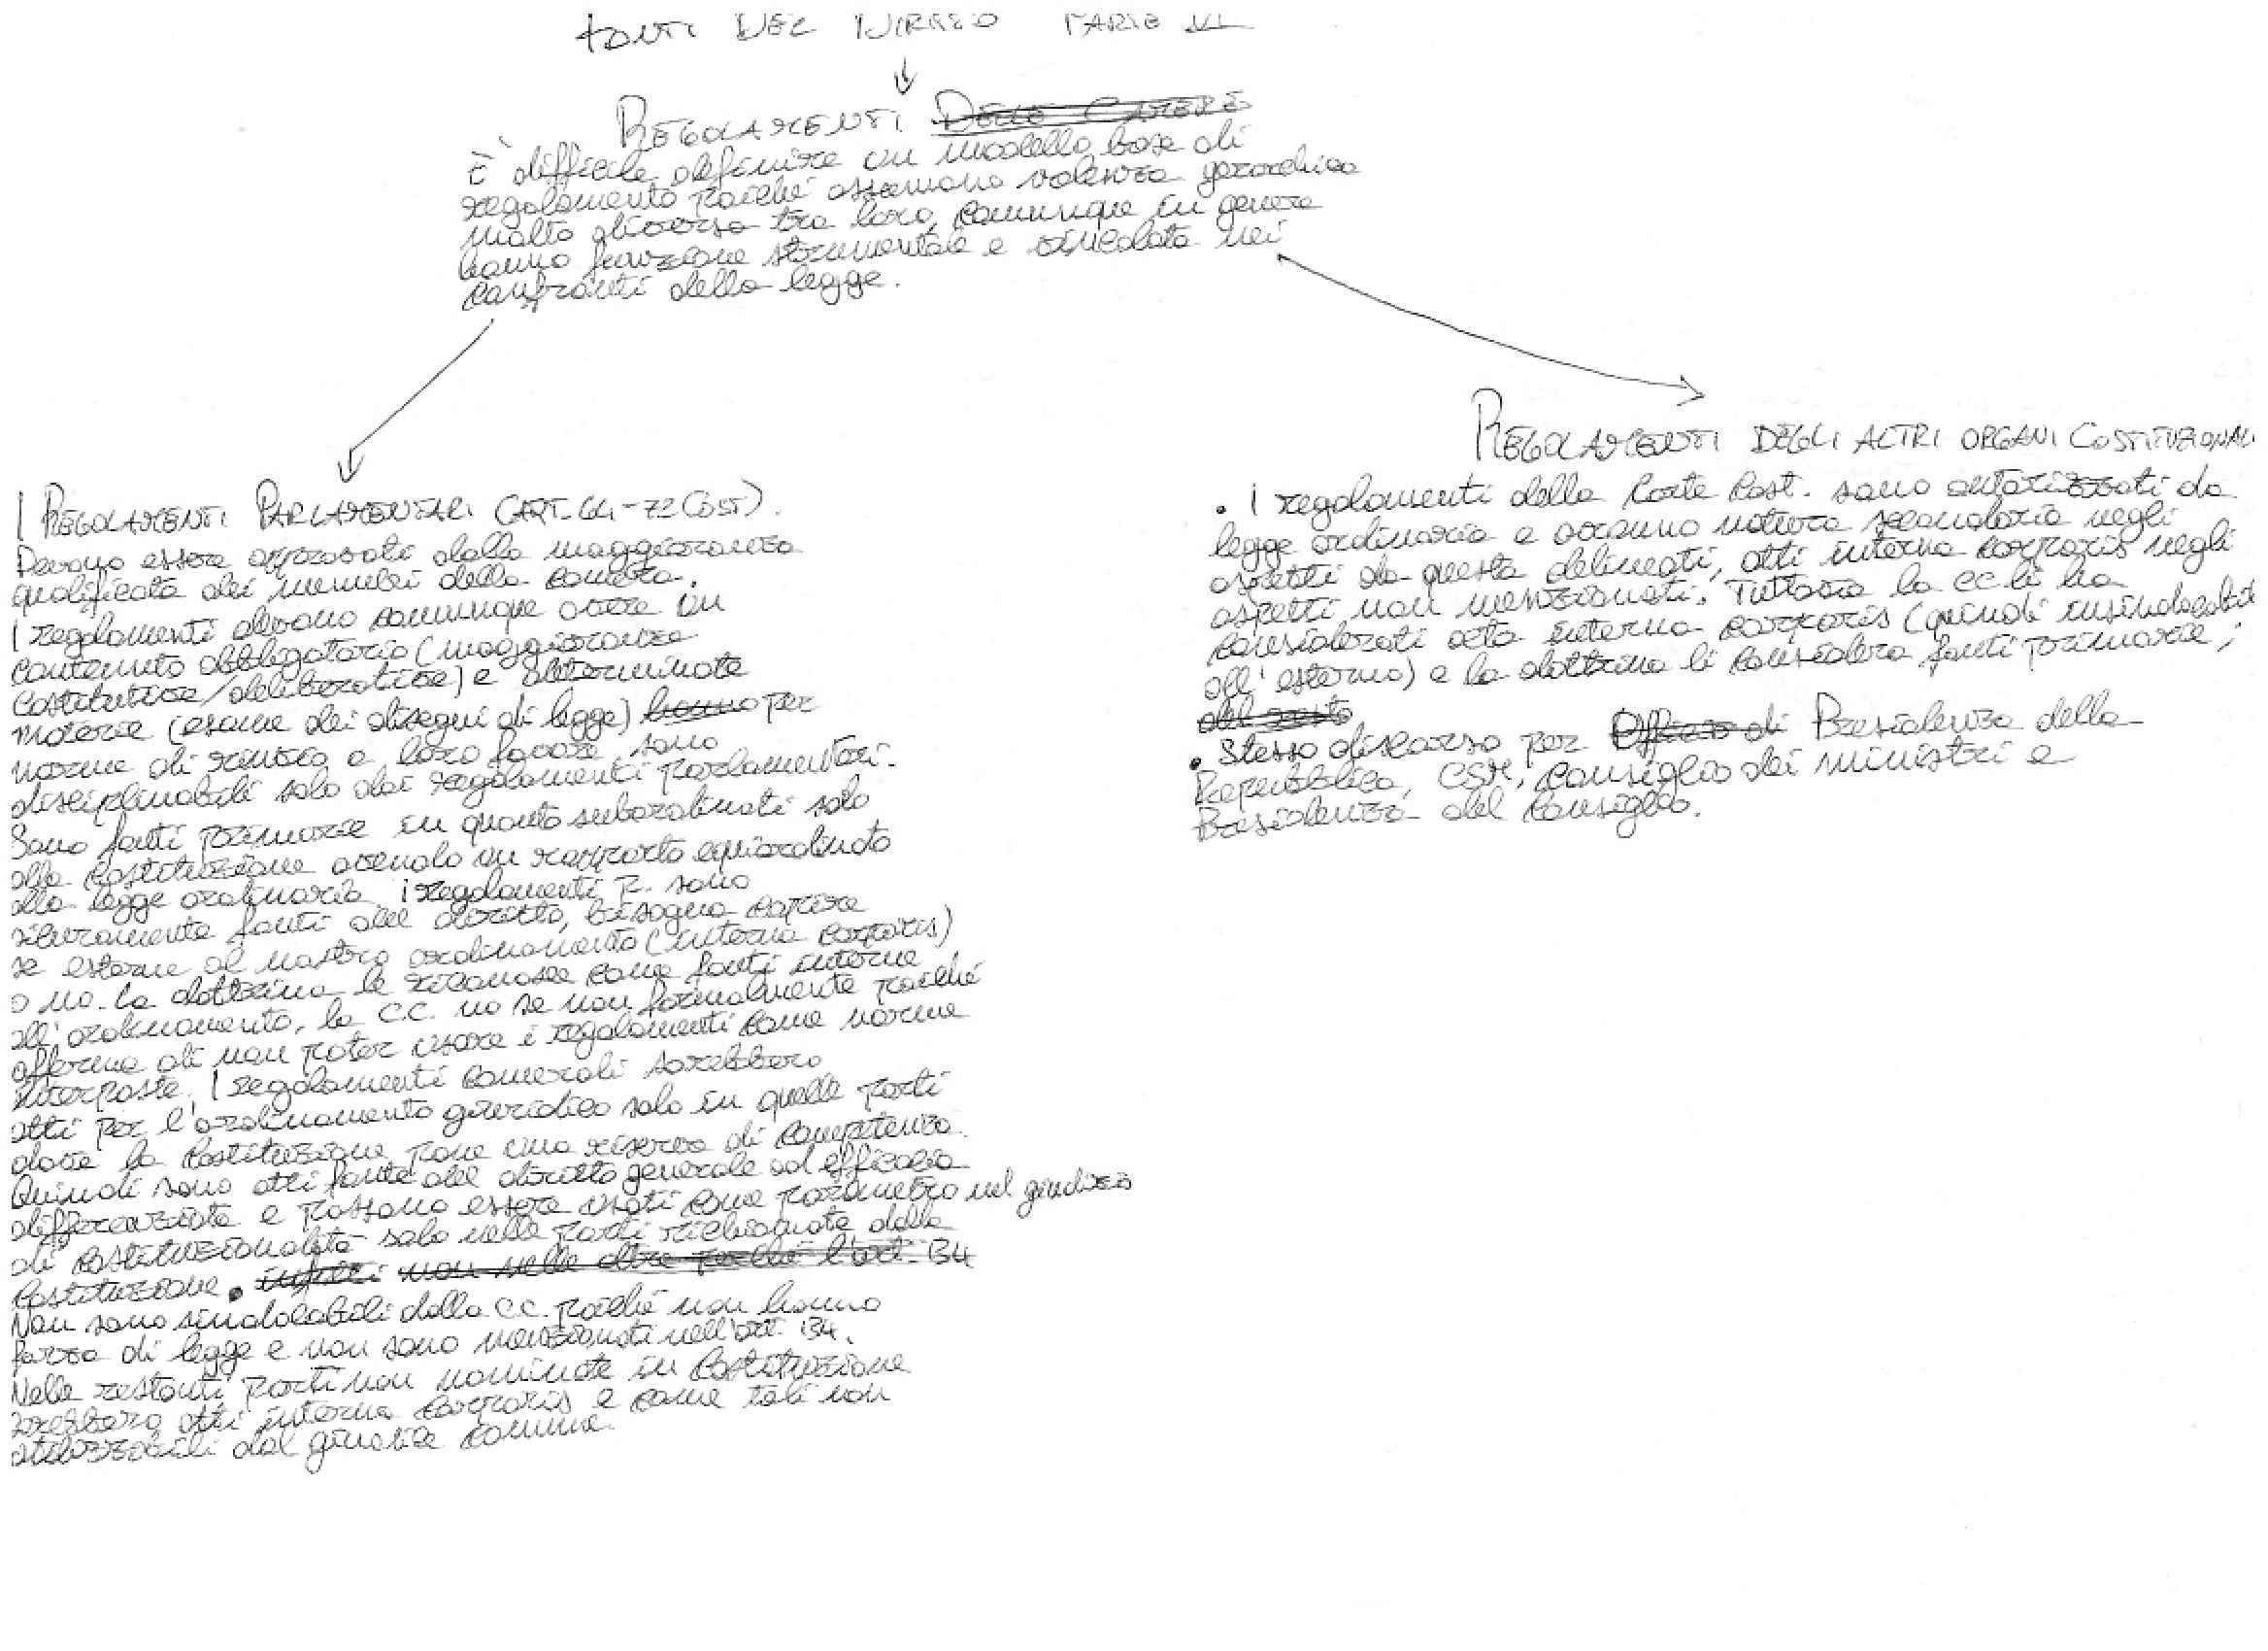 FONTI DEL DIRITTO PARTE VI
REGOLAMENTI DELLE CAMERE
È difficile definire un modello base di
regolamento poiché assumono valenza gerarchica
molto diversa tra loro, comunque in genere
hanno funzione strumentale e vincolata nei
confronti della legge.
I REGOLAMENTI PARLAMENTARI (ART. 64-72 COST).
Devono essere approvati dalla maggioranza
qualificata dei membri della camera.
I regolamenti devono comunque avere un
contenuto obbligatorio (maggioranza
costitutiva/deliberativa) e determinate
materie (esame dei disegni di legge) hanno per
norme di rinvio a loro favore sono
disciplinabili solo dai regolamenti parlamentari.
Sono fonti primarie in quanto subordinati solo
alla Costituzione avendo un rapporto equiordinato
alla legge ordinaria. i regolamenti p. sono
sicuramente fonti del diritto, bisogna capire
se esterne al nostro ordinamento (interna corporis)
o no. La dottrina le riconosce come fonti interne
all'ordinamento, la C.C. no se non formalmente poiché
afferma di non poter usare i regolamenti come norme
interposte. I regolamenti camerali sarebbero
atti per l'ordinamento giuridico solo in quelle parti
dove la Costituzione pone una riserva di competenza.
Quindi sono atti fonte del diritto generale ad efficacia
differenziata e possono essere usati come parametro nel giudizio
di costituzionalità solo nelle parti richiamate dalla
Costituzione. infatti non nelle altre perché l'art. 134
Non sono sindacabili dalla C.C. poiché non hanno
forza di legge e non sono menzionati nell'art. 134.
Nelle restanti parti non nominate in Costituzione
sarebbero atti interna corporis e come tali non
utilizzabili dal giudice comune.
REGOLAMENTI DEGLI ALTRI ORGANI COSTITUZIONALI
• I regolamenti della Corte Cost. sono autorizzati da
legge ordinaria e avranno natura secondaria negli
aspetti da questa delineati, atti interna corporis negli
aspetti non menzionati. Tuttavia la CC. li ha
considerati atti interna corporis (quindi insindacabili
all'esterno) e la dottrina li considera fonti primarie;
del resto
• Stesso discorso per di Presidenza della
Repubblica, CSM, Consiglio dei ministri e
Presidenza del Consiglio.